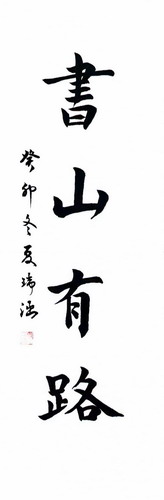 書山有路
癸卯冬夏瑞涵